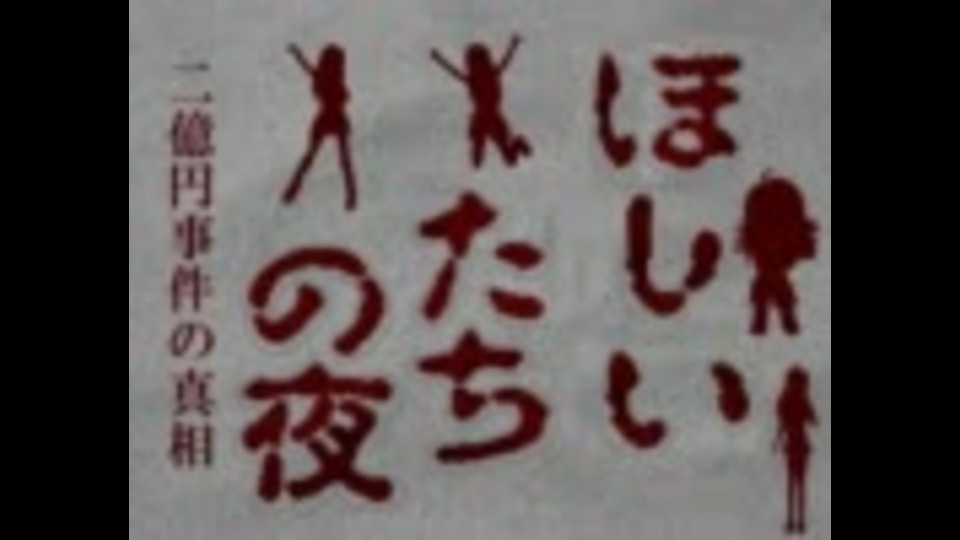 ほしい
たち
の夜
二億円事件の真相